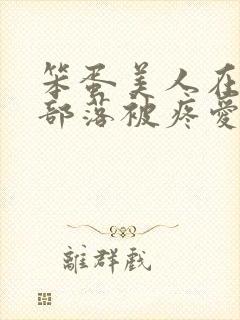 笨蛋美人在
部落被疼愛
離群戲